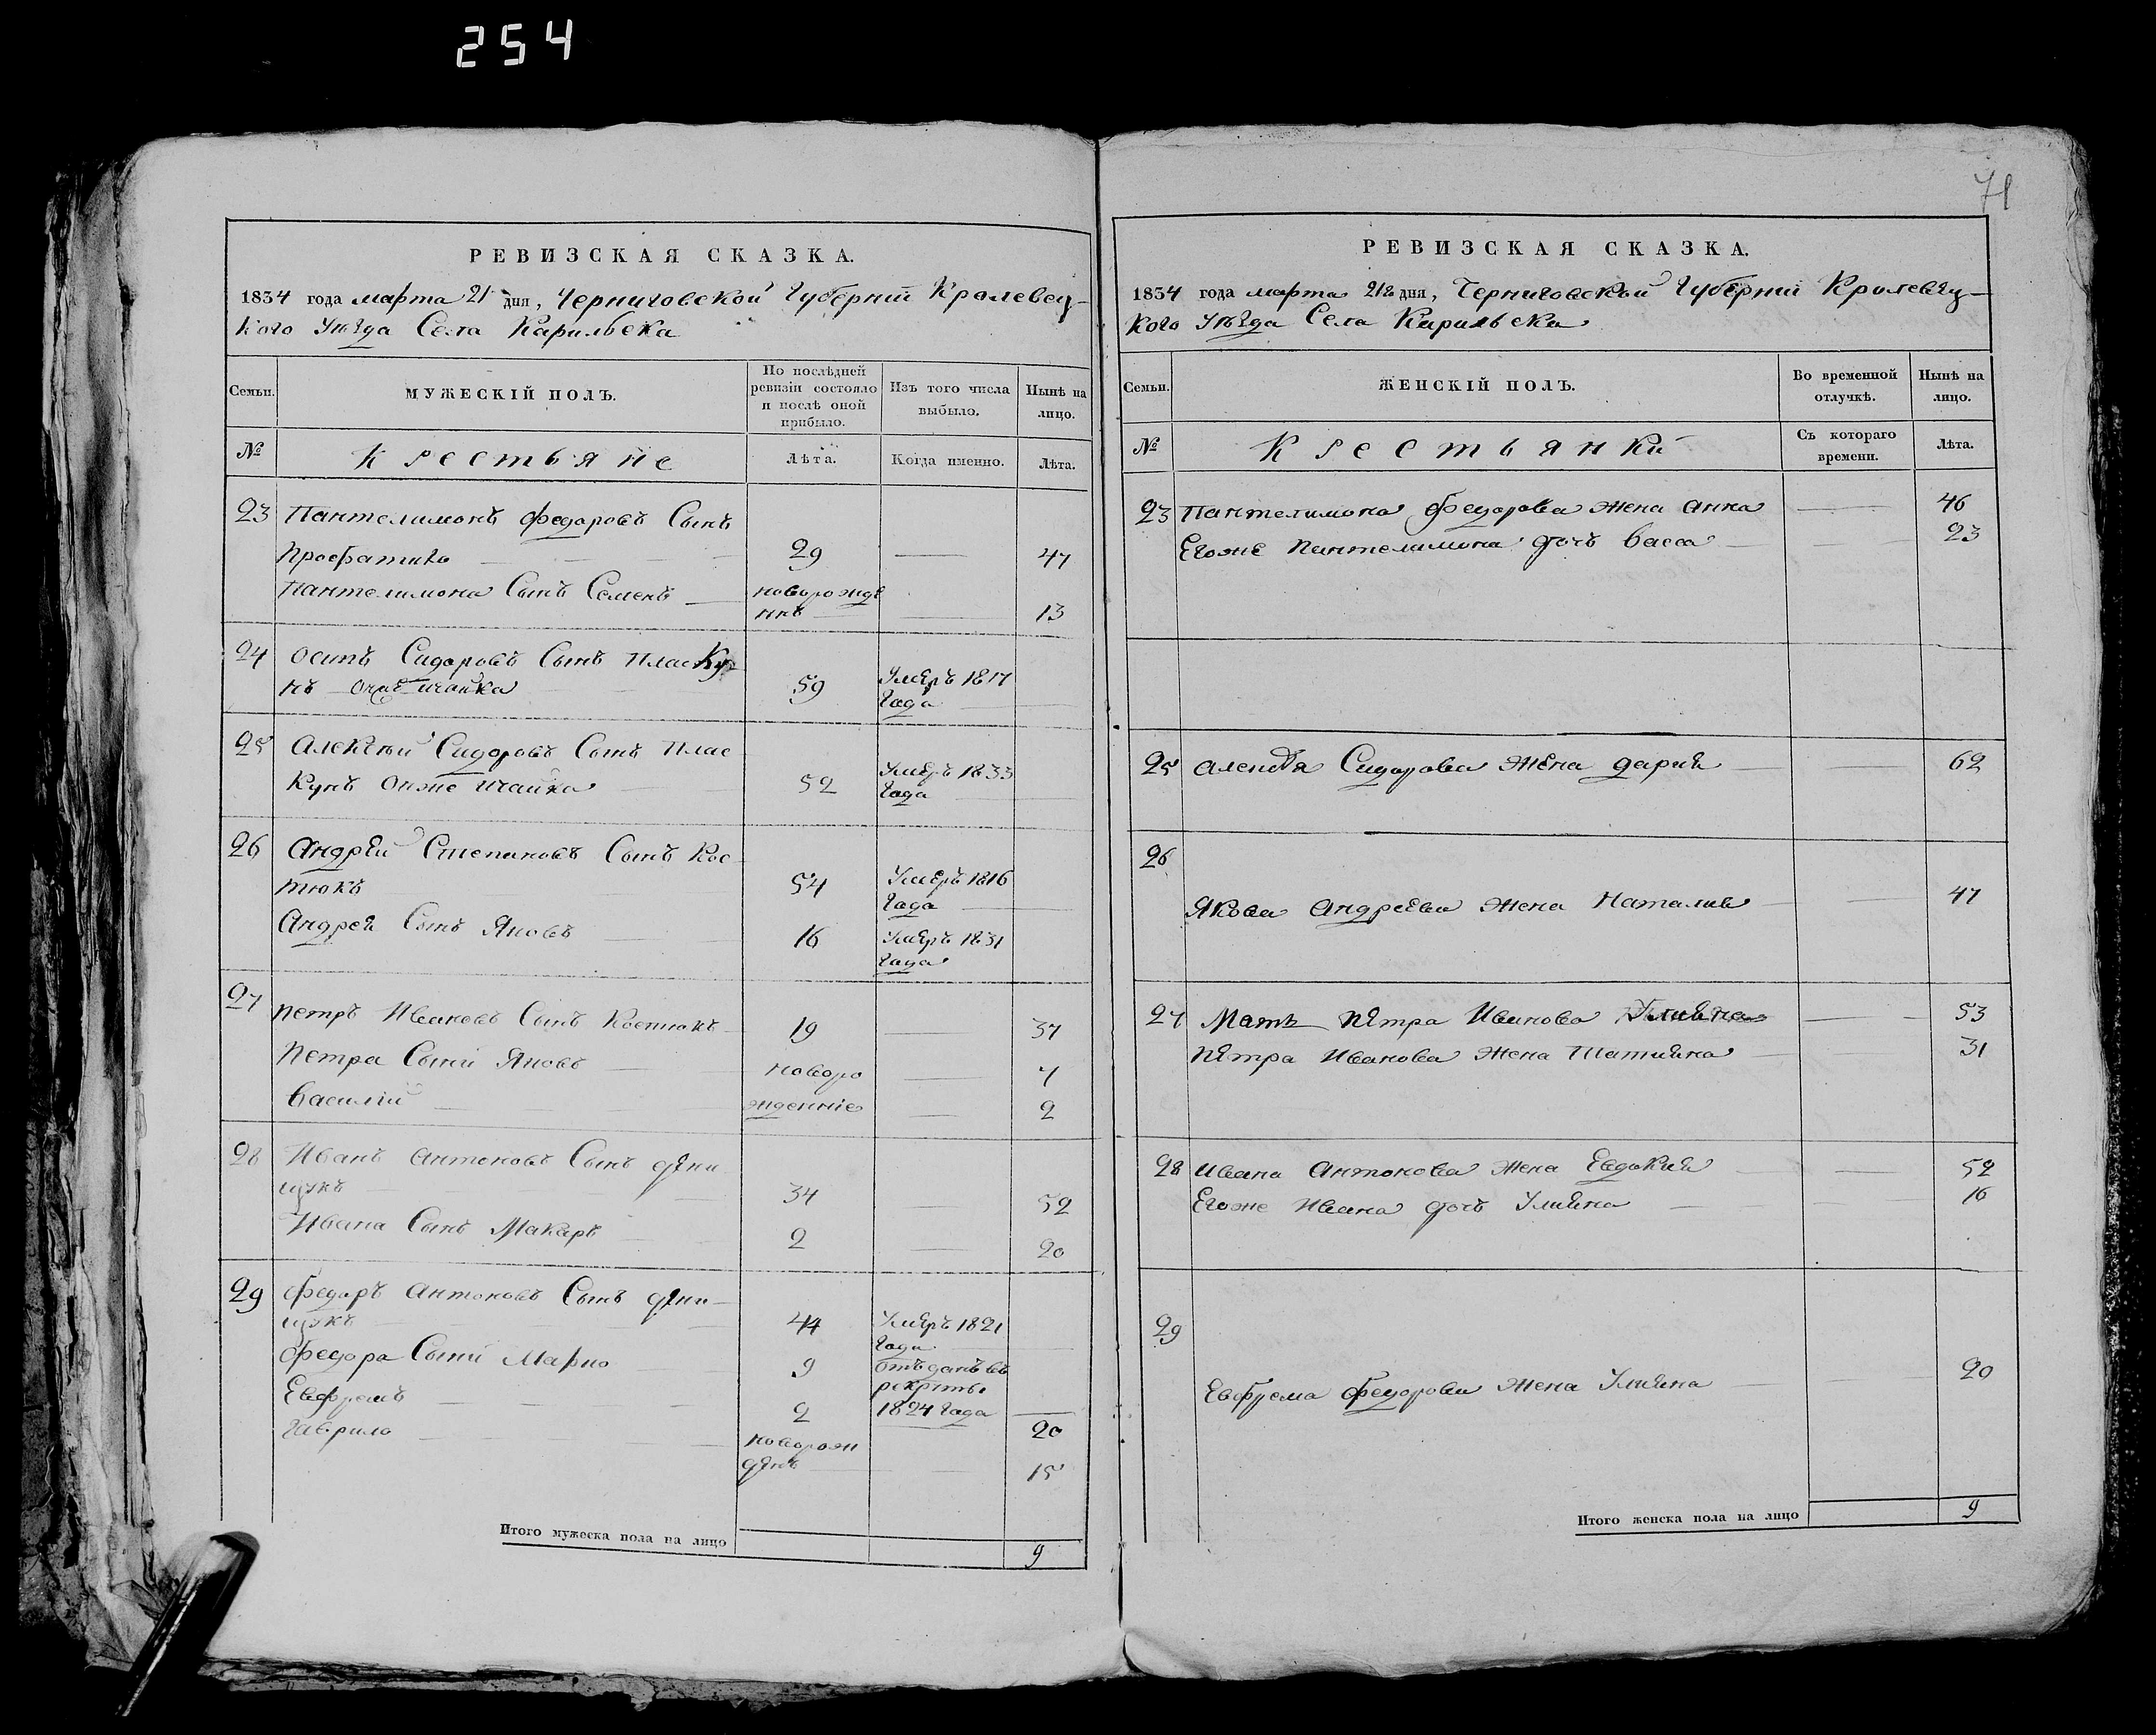 254
71
РЕВИЗСКАЯ СКАЗКА.
1834 года марта 21 дня, Черниговской Губерніи Кролевец-
кого Уѣзда Села Карильска
Семьи.
МУЖЕСКІЙ ПОЛЪ.
По послѣдней ревизіи состояло и послѣ оной прибыло.
Изъ того числа выбыло.
Нынѣ на лицо.
№
Крестьяне
Лѣта.
Когда именно.
Лѣта.
23 Пантелимонъ Федоровъ Сынъ
29 47
Пантелимона Сынъ Семенъ новорожде
ннъ 13
24 Осипъ Сидоровъ Сынъ Пласку
нъ онже Ичайка 59 Умеръ 1817
Года
25 Алексѣй Сидоровъ Сынъ Плас
кунъ Онже Ичайка 52 Умеръ 1833
Года
26 Андрей Степановъ Сынъ Кос
тюкъ 54 Умеръ 1816
Года
Андрея Сынъ Яковъ 16 Умеръ 1831
Года
27 Петръ Ивановъ Сынъ Костюкъ 19 37
Петра Сыни Яковъ новоро 7
Василій жденніе 2
28 Иванъ Антоновъ Сынъ Дени
щукъ 34 52
Ивана Сынъ Макаръ 2 20
29 Федоръ Антоновъ Сынъ Дени-
щукъ 44 Умеръ 1821
Года
Федора Сыни Марко 9 отъданъ въ
рекруты
Евфремъ 2 1824 Года 20
Гаврило новорож
денъ 15
Итого мужеска пола на лицо 9
РЕВИЗСКАЯ СКАЗКА.
1834 года марта 21го дня, Черниговской Губерніи Кролевец-
кого Уѣзда Села Карильска
Семьи.
ЖЕНСКІЙ ПОЛЪ.
Во временной отлучкѣ.
Нынѣ на лицо.
№
Крестьянки
Съ котораго времени.
Лѣта.
23 Пантелимона Федорова жена Анна 46
Егоже Пантелимона дочь Васса 23
25 Алексѣя Сидорова Жена Дарія 62
26
Якова Андреева жена Наталия 47
27 Мать Петра Иванова Улияна 53
Петра Иванова жена Татияна 31
28 Ивана Антонова жена Евдокия 52
Егоже Ивана дочь Улияна 16
29
Евфрема Федорова жена Улияна 20
Итого женска пола на лицо 9